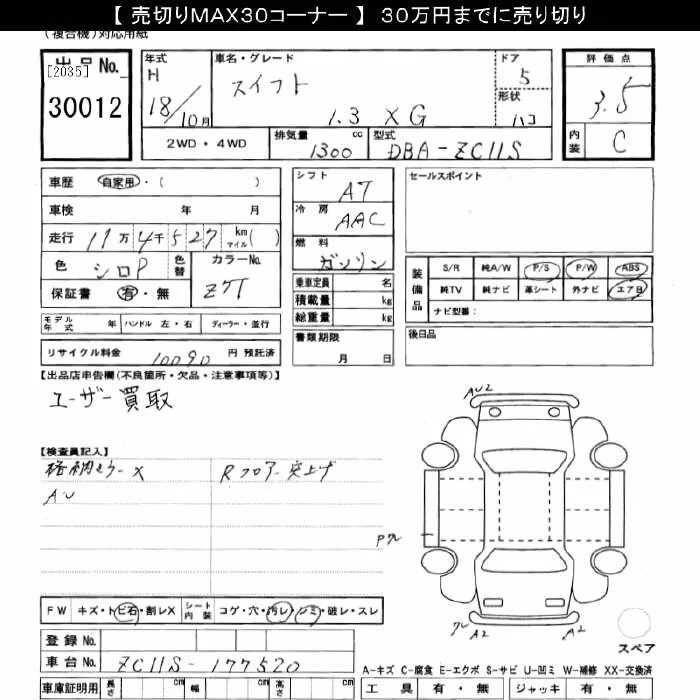 【 売切りMAX30コーナー 】 30万円までに売り切り
(複合機)対応用紙
出品No.
[2035]
30012
年式 H 18/10月
車名・グレード スイフト 1.3 XG
ドア 5
形状 ハコ
評価点 3.5
内装 C
2WD・4WD
排気量 1300 cc
型式 DBA-ZC11S
車歴 自家用・( )
車検 年 月
走行 11万4千527 km マイル( )
色 シロP 色替
カラーNo. Z7T
保証書 有・無
シフト AT
冷房 AAC
燃料 ガソリン
乗車定員 名
積載量 kg
総重量 kg
セールスポイント
装備品 S/R 純A/W P/S P/W ABS
純TV 純ナビ 革シート 外ナビ エアB
ナビ型番:
モデル年式 年 ハンドル 左・右 ディーラー・並行
リサイクル料金 10090 円 預託済
書類期限 月 日
後日品
【出品店申告欄(不良箇所・欠品・注意事項等)】
ユーザー買取
【検査員記入】
格納ミラーX
Rフロアー突上げ
AU
AU2
Pクレ
クレ A2
A2
FW キズ・トビ石・割レX シート内装 コゲ・穴・汚レ・シミ・破レ・スレ
スペア
登録No.
車台No. ZC11S-177520
A-キズ C-腐食 E-エクボ S-サビ U-凹ミ W-補修 XX-交換済
車庫証明用 長さ cm 幅 cm 高さ cm
工具 有・無 ジャッキ 有・無